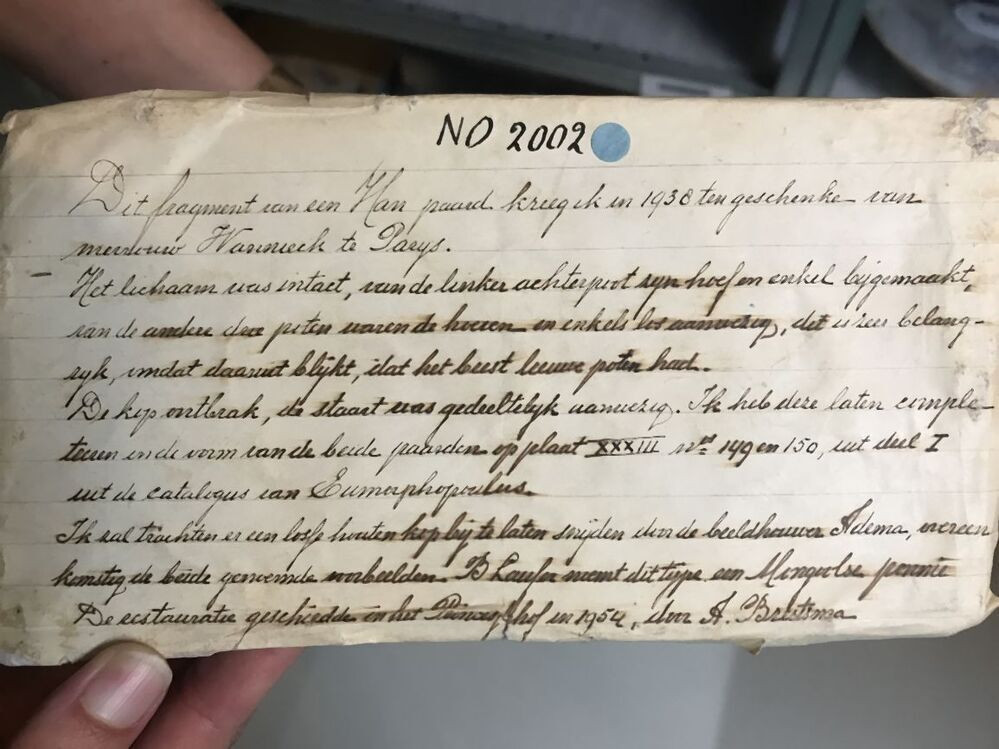 NO 2002
Dit fragment van een Han paard kreeg ik in 1938 ten geschenke van
mevrouw Wannieck te Parys.
Het lichaam was intact, van de linker achterpoot zyn hoef en enkel bijgemaakt,
van de andere drie poten waren de hoeven en enkels los aanwezig, dit is zeer belang-
ryk, omdat daaruit blijkt, dat het beest leeuwe poten had.
De kop ontbrak, de staart was gedeeltelyk aanwezig. Ik heb deze laten comple-
teeren in de vorm van de beide paarden op plaat XXXIII nrs 149 en 150, uit deel I
uit de catalogus van Eumorphopoulus.
Ik zal trachten er een losse houten kop bij te laten snijden door de beeldhouwer Adema, overeen
komstig de beide genoemde voorbeelden. B Laufer noemt dit type een Mongoolse pennie
De restauratie geschiedde in het Princessehof en 1954, door A. Breitsma